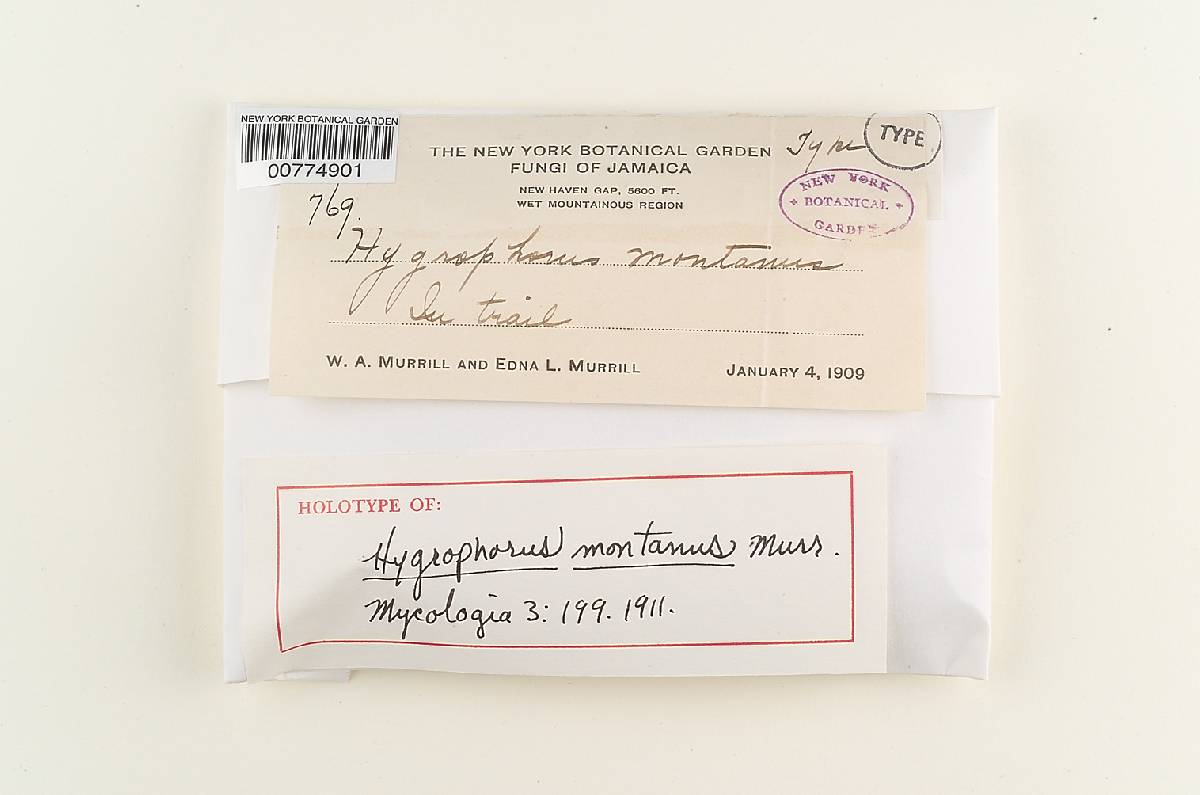 NEW YORK BOTANICAL GARDEN
00774901
THE NEW YORK BOTANICAL GARDEN
FUNGI OF JAMAICA
NEW HAVEN GAP, 5600 FT.
WET MOUNTAINOUS REGION
Type
TYPE
NEW YORK
BOTANICAL
GARDEN
769.
Hygrophorus montanus
In trail
W. A. MURRILL AND EDNA L. MURRILL
JANUARY 4, 1909
HOLOTYPE OF:
Hygrophorus montanus Murr.
Mycologia 3: 199. 1911.